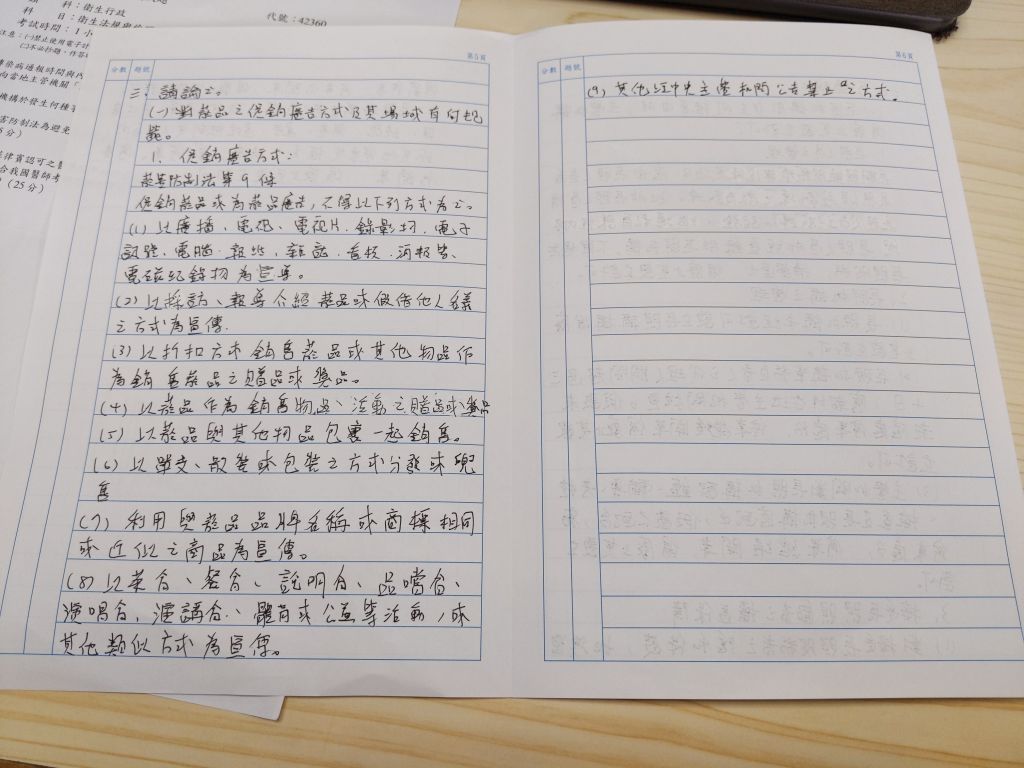 科：衛生行政
代號：42360
目：衛生法規與
考試時間：1小
注意：㈠禁止使用電子計
㈡不必抄題，作答
傳染病通報時間與內
向當地主管機關
機構於發生何種
害防制法為避免
分）
律賓認可之
合我國醫師考
（25分）
第5頁
分數 題號
三、請論之。
(一)對菸品之促銷廣告方式及其場域有何規
範。
1. 促銷廣告方式：
菸害防制法第9條
促銷菸品或為菸品廣告，不得以下列方式為之。
(1) 以廣播、電視、電視片、錄影物、電子
訊號、電腦、報紙、雜誌、看板、海報等、
電磁紀錄物為宣導。
(2) 以採訪、報導介紹菸品或假借他人名義
之方式為宣傳.
(3) 以折扣方式銷售菸品或其他物品作
為銷售菸品之贈品或獎品。
(4) 以菸品作為銷售物品、活動之贈品或獎品
(5) 以菸品與其他物品包裹一起銷售。
(6) 以單支、散裝或包裝之方式分發或兜
售
(7) 利用與菸品品牌名稱或商標相同
或近似之商品為宣傳。
(8) 以茶會、餐會、說明會、品嚐會、
演唱會、演講會、體育或公益等活動，或
其他類似方式為宣傳。
第6頁
分數 題號
(9) 其他經中央主管機關公告禁止之方式。